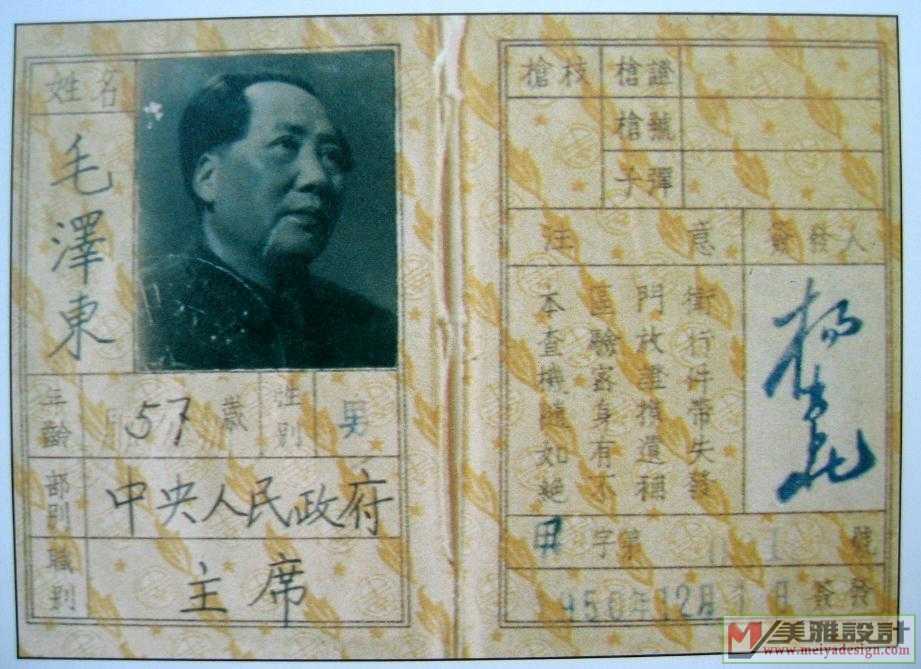 姓名
毛澤東
年齡 57 歲 性別 男
部別 中央人民政府
職別 主席
槍枝 槍證
槍號
子彈
注意 簽發人
本區門衛
查驗放行
機密證件
隨身攜帶
如有遺失
絕不補發
楊尚昆
甲字第 1 號
950年12月 日簽發
美雅設計
www.meiyadesign.com